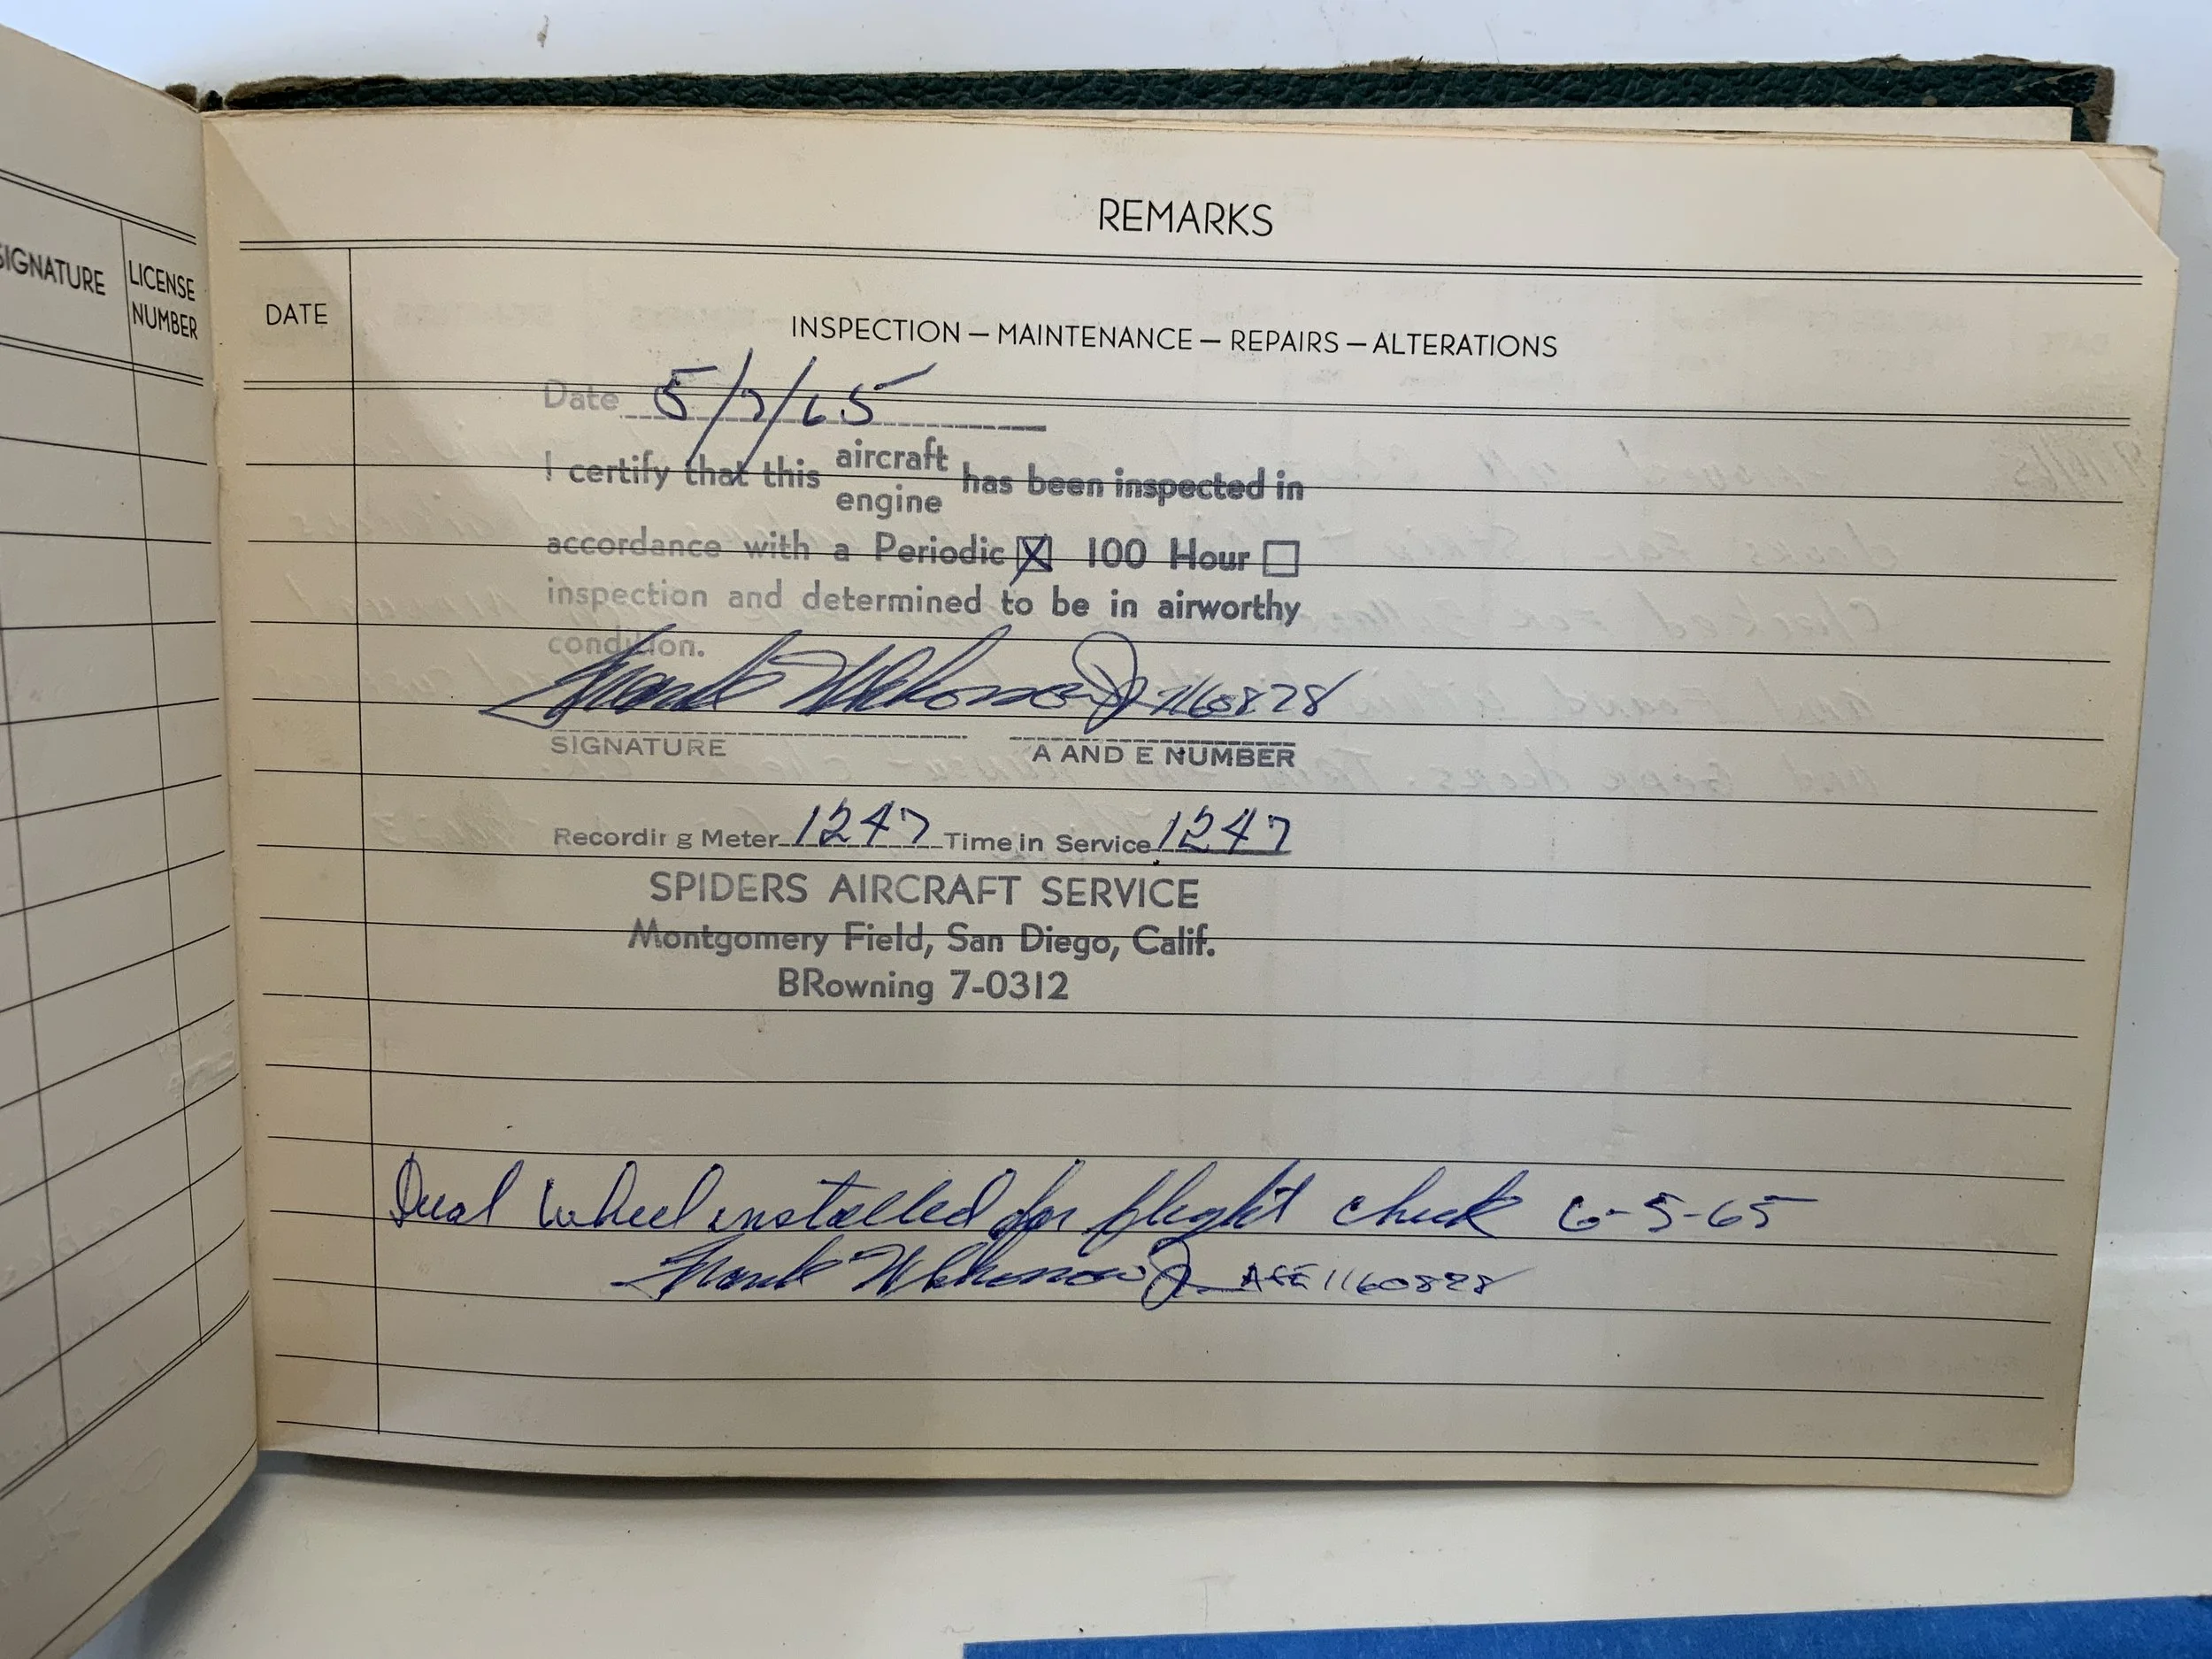 SIGNATURE
LICENSE
NUMBER
REMARKS
DATE
INSPECTION — MAINTENANCE — REPAIRS — ALTERATIONS
Date 5/7/65
I certify that this aircraft engine has been inspected in
accordance with a Periodic ☒ 100 Hour ☐
inspection and determined to be in airworthy
condition.
Frank 1160828
SIGNATURE A AND E NUMBER
Recording Meter 1247 Time in Service 1247
SPIDERS AIRCRAFT SERVICE
Montgomery Field, San Diego, Calif.
BRowning 7-0312
Dual wheel installed for flight check 6-5-65
Frank A&E 1160828